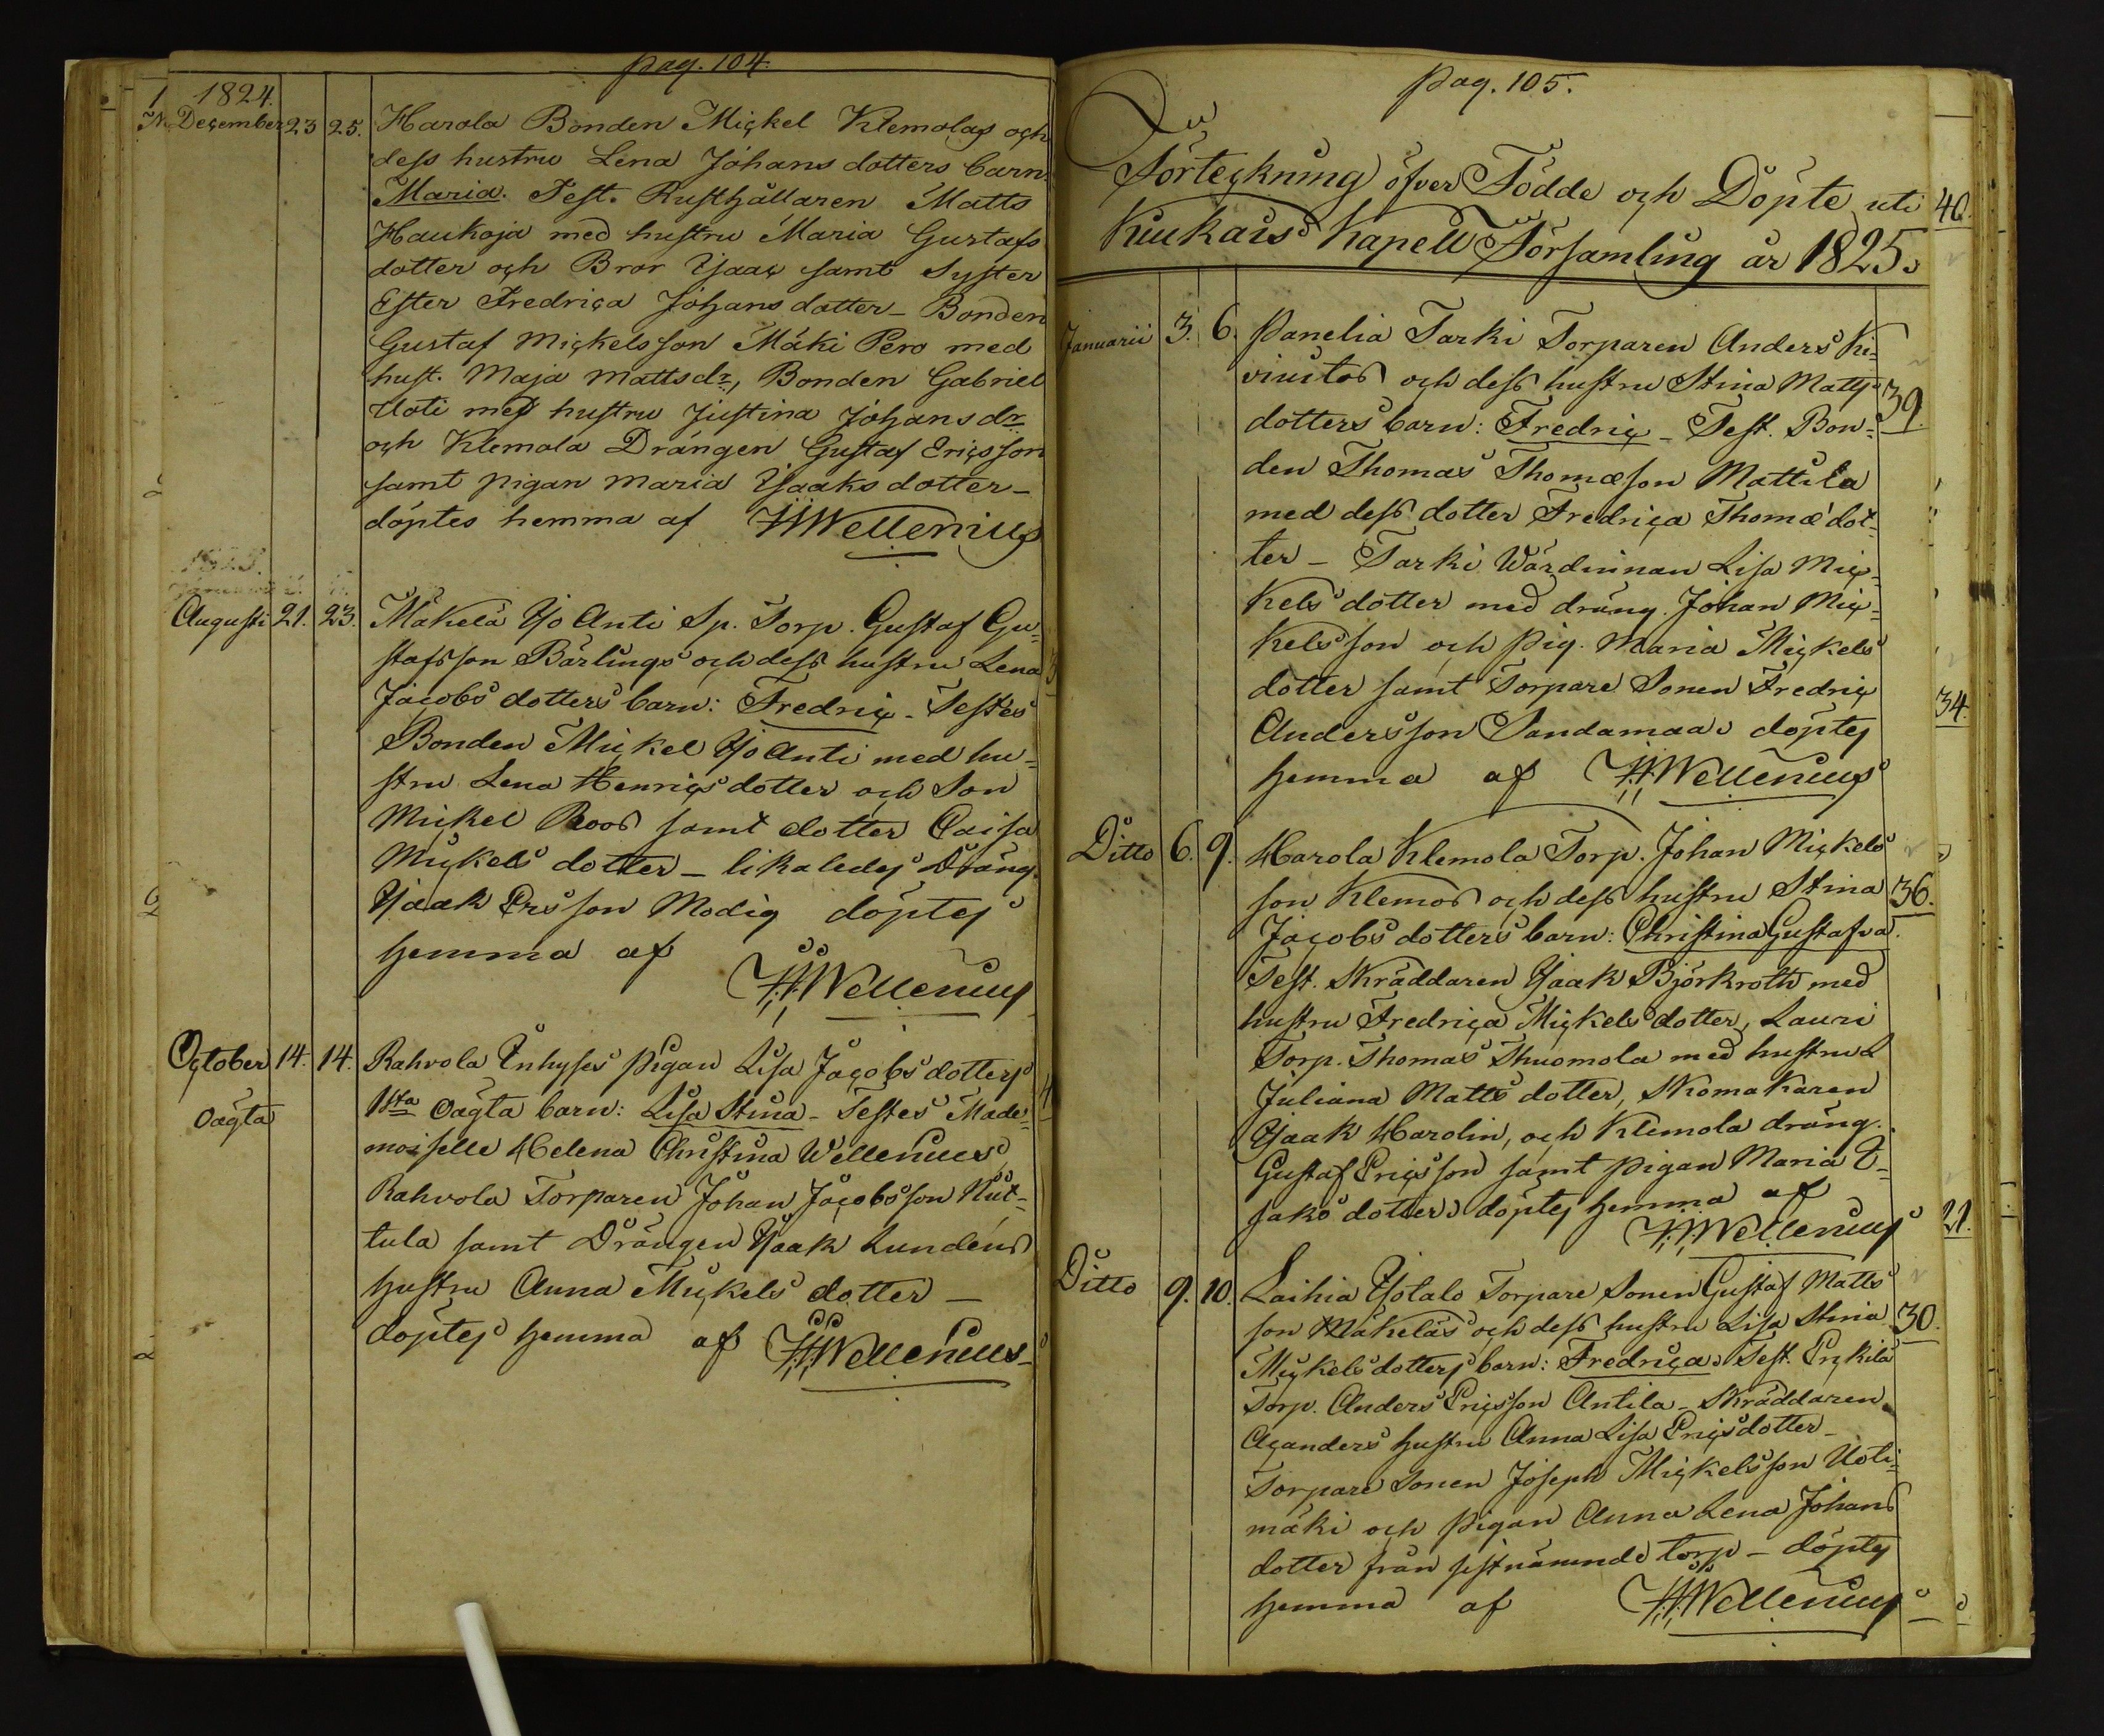 pag. 104.
1824.
December 23 25. Harola Bonden Mickel Klemolas och
dess hustru Lena Johans dotters barn:
Maria. Test. Rusthållaren Matts
Haukoja med hustru Maria Gustafs
dotter och Bror Isaac samt Syster
Ester Fredrica Johans dotter – Bonden
Gustaf Mickelsson Mäki Pero med
hust. Maja Mattsdr, Bonden Gabriel
Uoti med hustru Justina Johansdr
och Klemola Drängen Gustaf Ericsson
samt pigan Maria Isaaks dotter –
döptes hemma af HHWellenius
1825.
Augusti 21. 23. Mäkelä Iso Anti Sp. Torp. Gustaf Gu-
stafsson Bärlings och dess hustru Lena
Jacobs dotters barn: Fredric – Testes
Bonden Mickel Iso Anti med hu-
stru Lena Henrics dotter och Son
Mickel Roos samt dotter Caisa
Mickels dotter – likaledes Dräng
Isaak Ersson Modig döptes
hemma af
HHWellenius
October 14. 14. Rahvola Inhyses pigan Lisa Jacobs dotters
oägta
1sta oägta barn: Lisa Stina – Testes Made-
moiselle Helena Christina Wellenius
Rahvola Torparen Johan Jacobsson Nut-
tula samt Drängen Isaak Lundens
hustru Anna Mickels dotter –
döptes hemma af HHWellenius –
pag. 105.
Förteckning öfver Födde och Döpte uti
Kiukais Kapell Församling år 1825.
40.
Januarii 3. 6. Panelia Tarki Torparen Anders Ki-
viustos och dess hustru Stina Matts
39.
dotters barn: Fredric – Test. Bon-
den Thomas Thomæson Mattila
med dess dotter Fredrica Thomæ dot-
ter – Tarki Wärdinnan Lisa Mic-
kels dotter med dräng. Johan Mic-
kelsson och pig. Maria Mickels
dotter samt Torpare Sonen Fredric
34.
Andersson Sandamaa döptes
hemma af HHWellenius
Ditto 6. 9. Harola Klemola Torp. Johan Mickels
son Klemos och dess hustru Stina
36.
Jacobs dotters barn: Christina Gustafva.
Test. Skräddaren Isaak Björkroth med
hustru Fredrica Mickels dotter, Lauri
Torp. Thomas Thuomola med hustru
Juliana Matts dotter, Skomakaren
Isaak Harolin, och Klemola dräng.
Gustaf Ericsson samt pigan Maria I-
saks dotter döptes hemma af
HHWellenius
21.
Ditto 9. 10. Laihia Isotalo Torpare Sonen Gustaf Matts
son Mäkeläs och dess hustru Lisa Stina
30.
Mickels dotters barn: Fredrica. Test. Erkilä
Torp. Anders Ericsson Antila – Skräddaren
Acanders hustru Anna Lisa Ericsdotter –
Torpare Sonen Joseph Mickelsson Uoti-
mäki och pigan Anna Lena Johans
dotter från sistnämnde torp – döptes
hemma af HHWellenius